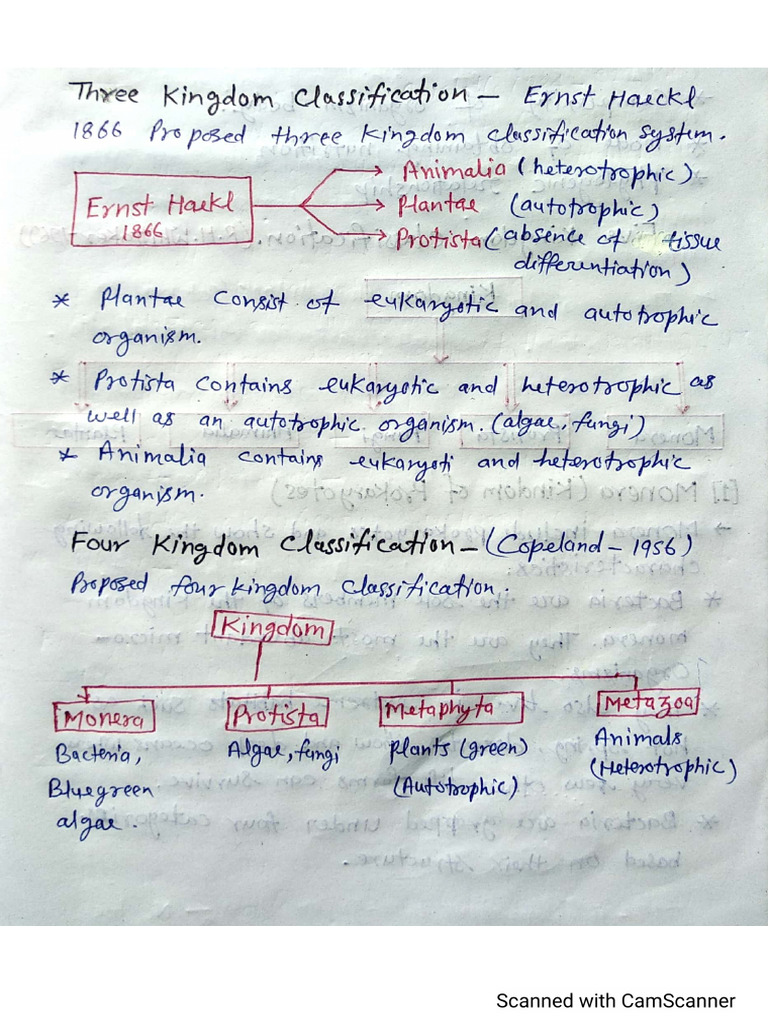 Three Kingdom Classification - Ernst Haeckl
1866 Proposed three Kingdom classification system.
Ernst Haekl
1866
Animalia (heterotrophic)
Plantae (autotrophic)
Protista (absence of tissue
differentiation)
* Plantae consist of eukaryotic and autotrophic
organism.
* Protista contains eukaryotic and heterotrophic as
well as an autotrophic organism. (algae, fungi)
* Animalia contains eukaryoti and heterotrophic
organism.
Four Kingdom Classification - (Copeland - 1956)
Proposed four kingdom classification.
Kingdom
Monera
Protista
Metaphyta
Metazoa
Bacteria,
Bluegreen
algae.
Algae, fungi
Plants (green)
(Autotrophic)
Animals
(Heterotrophic)
Scanned with CamScanner